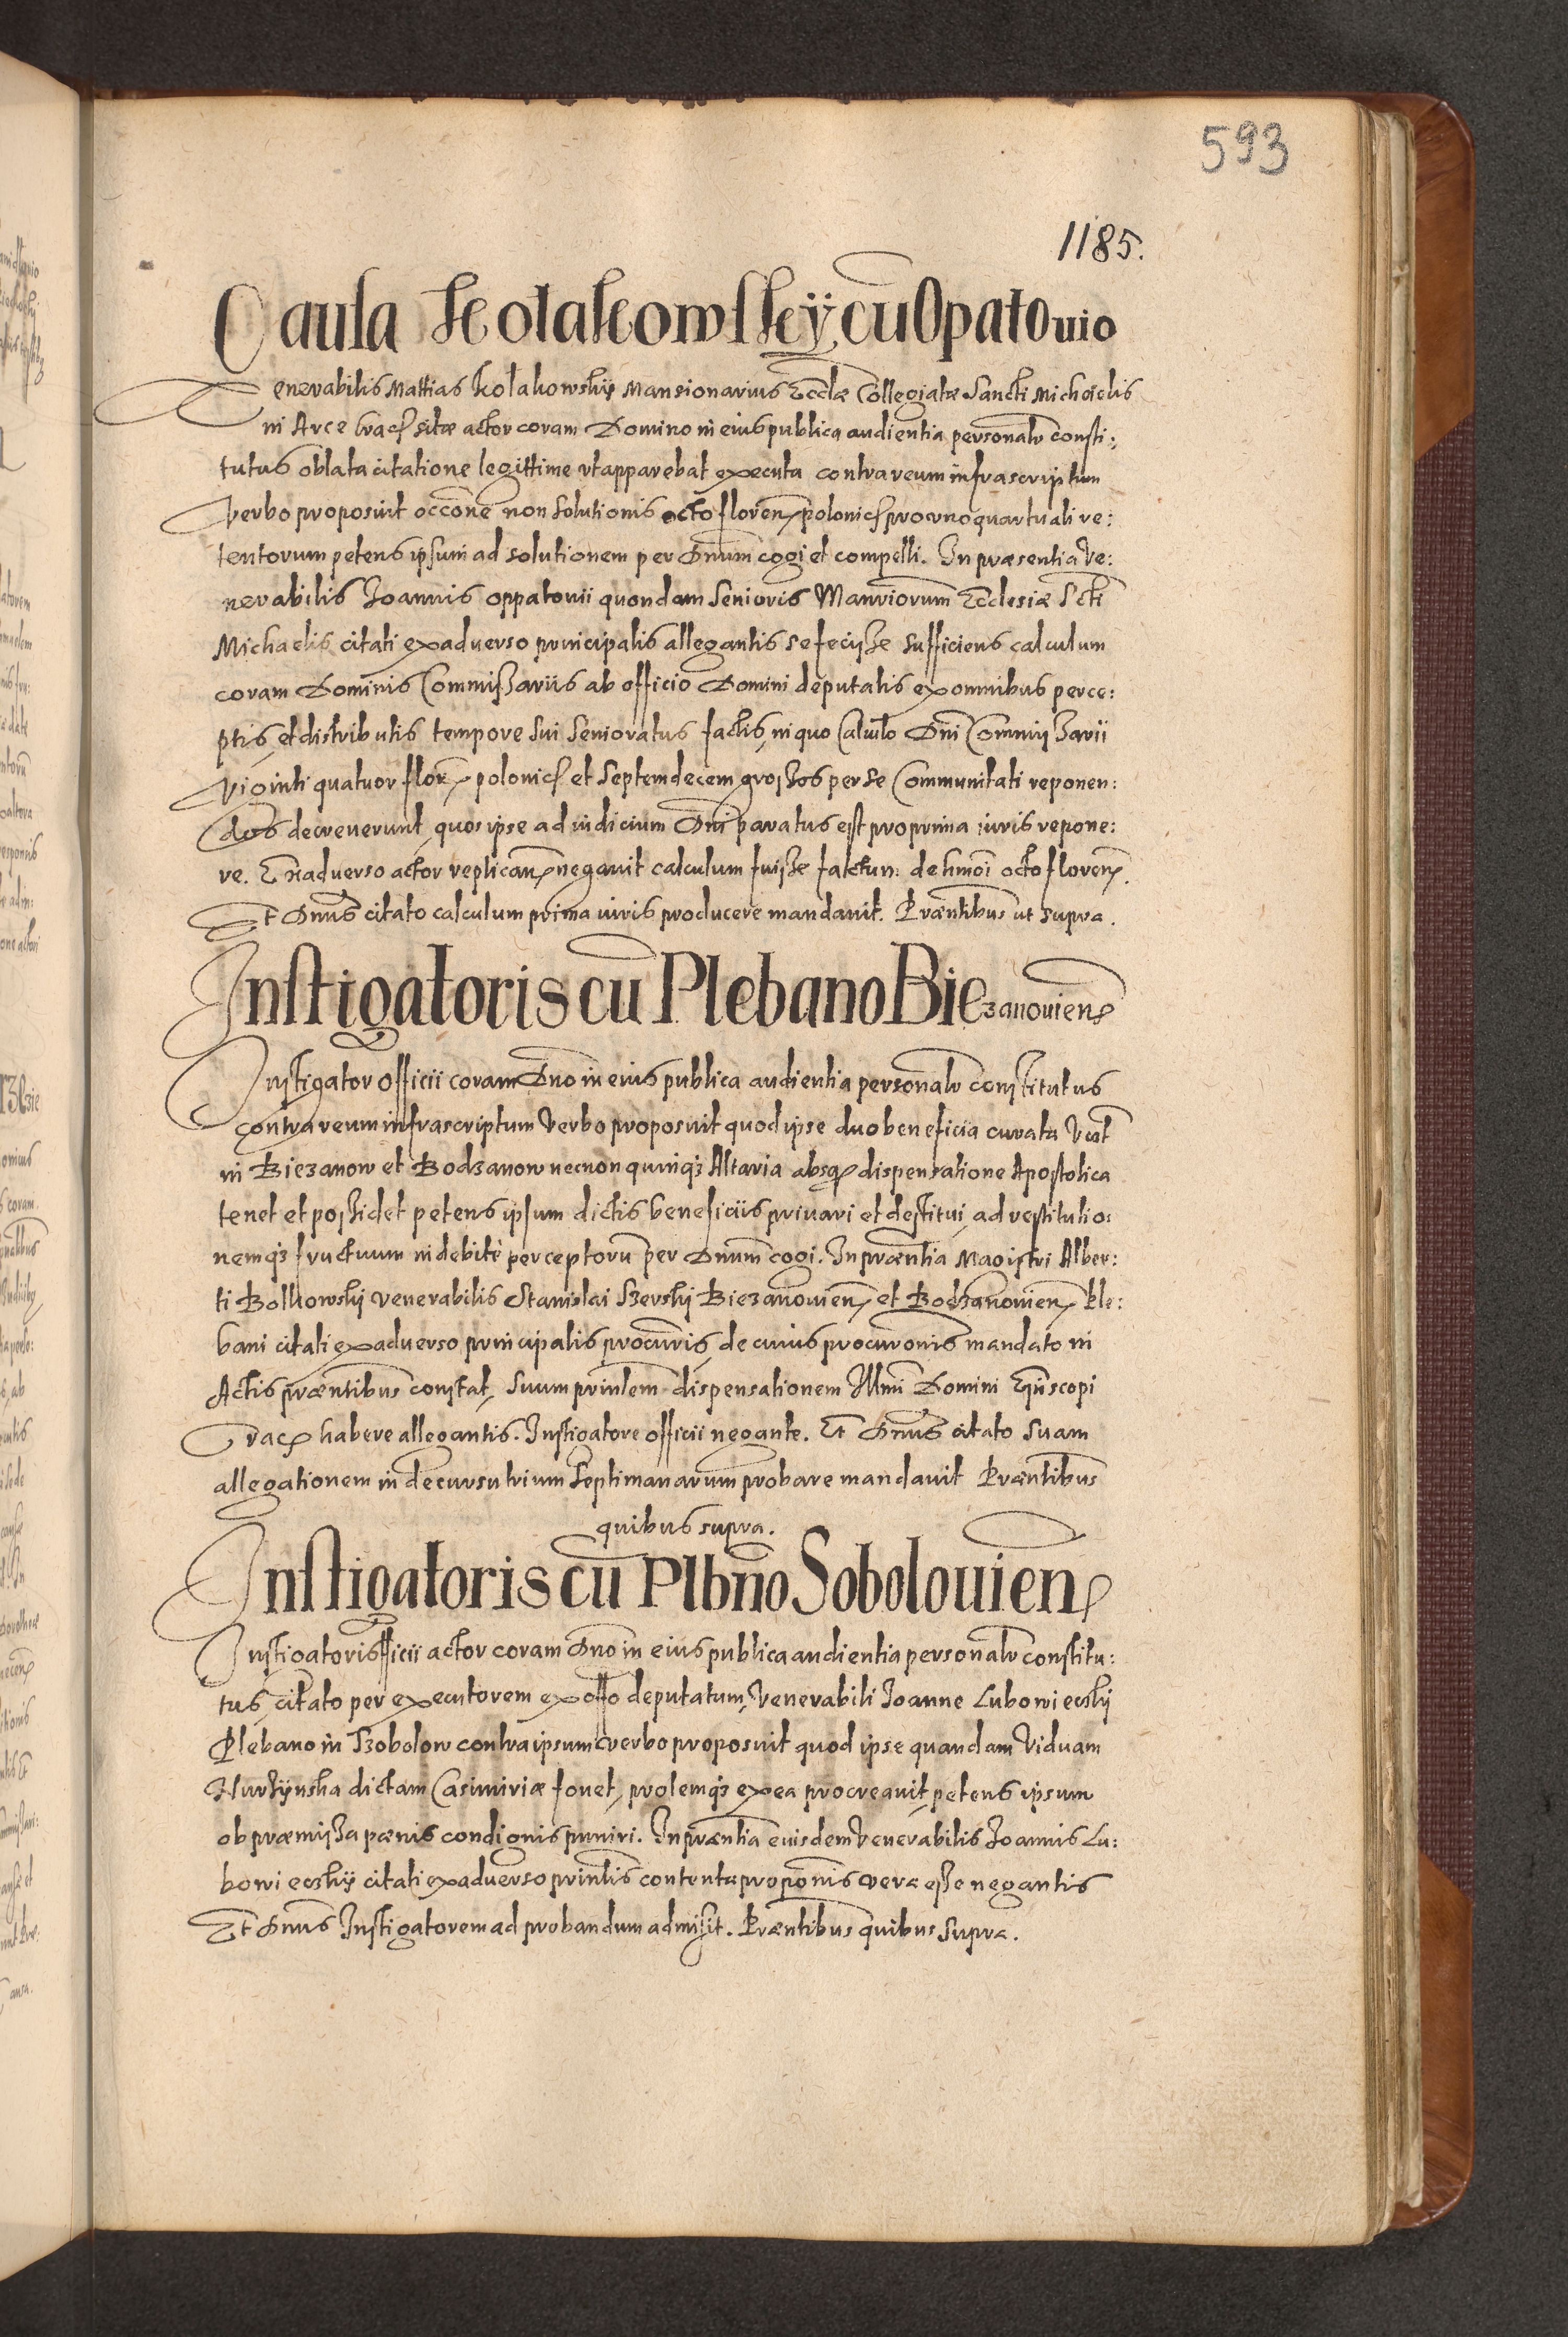 593
1185.
Causa Kolakowskÿ cū Opatovio
Venerabilis Mattias Kolakowskÿ Mansionarius Eccłæ Collegiatæ Sancti Michaelis
in Arce Crac̄ sitæ actor coram Domino in eius publica audientia personalr consti:
tutus oblata citatione legittime ut apparebat executa contra reum infrascriptum
verbo proposuit occōne non solutionis octo floren̄ polonic̄ pro uno quartuali re:
tentorum petens ipsum ad solutionem per Dnūm cogi et compelli. In præsentia Ve:
nerabilis Joannis oppatovii quondam Senioris Mansiōrum Ecclesiæ Scti
Michaelis citati ex adverso principalis allegantis se fecisse sufficiens calculum
coram Dominis Commissariis ab officio Domini deputatis ex omnibus perce:
ptis et distributis tempore sui Senioratus factis, in quo Calculo Dni Commissarii
Viginti quatuor flor̄ polonic̄ et septemdecem grossos per se Communitati reponen:
dos decreverunt, quos ipse ad iudicium Dni paratus est pro prima iuris repone:
re. Ex adverso actor replican̄ negavit calculum fuisse factum de hmōi octo floren̄.
Et Dnus citato calculum prima iuris producere mandavit. Præntibus ut supra.
Instigatoris cū Plebano Biezanovien̄
Instigator officii coram Dno in eius publica audientia personalr constitutus
contra reum infrascriptum verbo proposuit quod ipse duo beneficia curata
in Biezanow et Bodzanow necnon quinqz Altaria absq dispensatione Apostolica
tenet et possidet petens ipsum dictis beneficiis privari et destitui, ad restitutio:
nemqz fructuum indebitè perceptorū per Dnūm cogi. In præntia Magistri Alber:
ti Bolkowskÿ venerabilis Stanislai Szerskÿ Biezanovien̄ et Bodzanovien̄ Ple:
bani citati ex adverso principalis procūris, de cuius procurōnis mandato in
Actis præntibus constat, suum prinlem dispensationem Illmi Domini Epīscopi
Crac̄ habere allegantis. Instigatore officii negante. Et Dnus citato suam
allegationem in decursu trium septimanarum probare mandavit Præntibus
quibus supra.
Instigatoris cū Plbno Sobolovien̄
Instigator officii actor coram Dno in eius publica audientia personalr constitu:
tus, citato per executorem ex offo deputatum, Venerabili Joanne Lubowieckÿ
Plebano in Szobolow contra ipsum verbo proposuit quod ipse quandam Viduam
Kurzÿnska dictam Casimiriæ fovet, prolemqz ex ea procreavit, petens ipsum
ob præmissa pænis condignis puniri. In præntia eiusdem Venerabilis Joannis Lu:
bowieckÿ citati ex adverso prinlis contenta propōnis vera esse negantis
Et Dnus Instigatorem ad probandum admisit. Præntibus quibus supra.